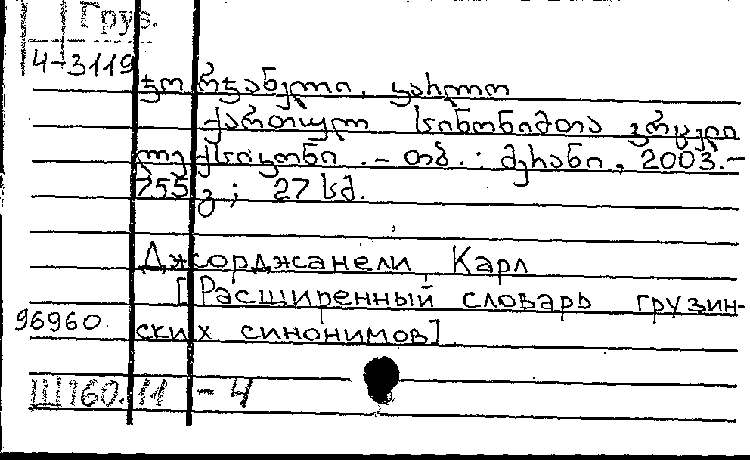 Груз.
4-3119
ჯორჯანელი, კარლო
ქართულ სინონიმთა ვრცელი
ლექსიკონი. – თბ. : მერანი, 2003. –
755 გ ; 27 სმ.
Джорджанели, Карл
[Расширенный словарь грузин-
96960. ских синонимов]
Ш160.11 - 4